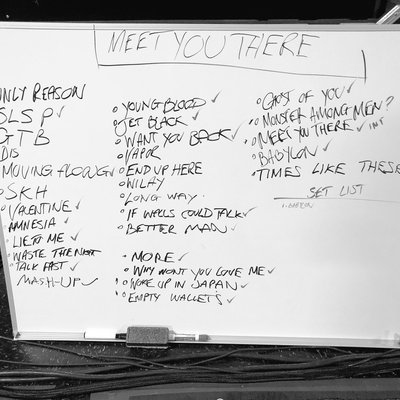 MEET YOU THERE
ONLY REASON
SLSP ✓
GTB
DIS
MOVING ALONG ✓
SKH
VALENTINE ✓
AMNESIA ✓
LIE TO ME ✓
WASTE THE NIGHT
TALK FAST ✓
MASH-UP ✓
YOUNGBLOOD ✓
JET BLACK ✓
WANT YOU BACK ✓
VAPOR
END UP HERE
WILAY
LONG WAY
IF WALLS COULD TALK ✓
BETTER MAN ✓
MORE ✓
WHY WON'T YOU LOVE ME ✓
WOKE UP IN JAPAN ✓
EMPTY WALLETS ✓
GHOST OF YOU ✓
MONSTER AMONG MEN?
MEET YOU THERE ✓ INT
BABYLON ✓
TIMES LIKE THESE
SET LIST